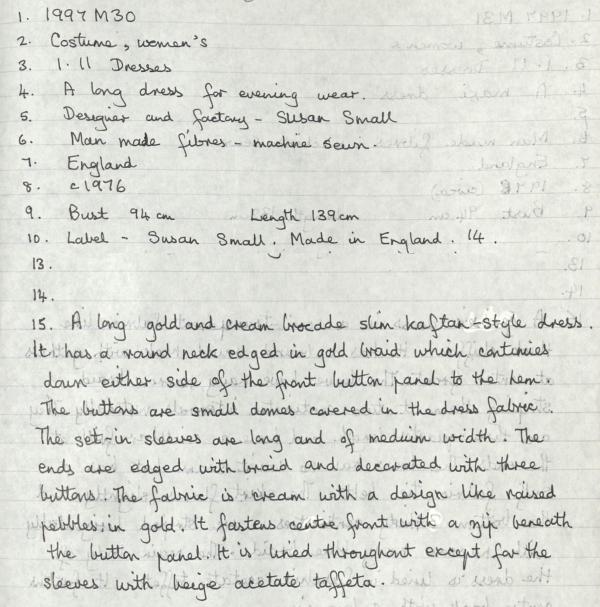 1. 1997 M30
2. Costume, women's
3. 1.11 Dresses
4. A long dress for evening wear.
5. Designer and factory - Susan Small
6. Man made fibres - machine sewn.
7. England
8. c1976
9. Bust 94 cm Length 139cm
10. Label - Susan Small. Made in England. 14.
13.
14.
15. A long gold and cream brocade slim kaftan-style dress.
It has a round neck edged in gold braid which continues
down either side of the front button panel to the hem.
The buttons are small domes covered in the dress fabric.
The set-in sleeves are long and of medium width. The
ends are edged with braid and decorated with three
buttons. The fabric is cream with a design like raised
pebbles in gold. It fastens centre front with a zip beneath
the button panel. It is lined throughout except for the
sleeves with beige acetate taffeta.